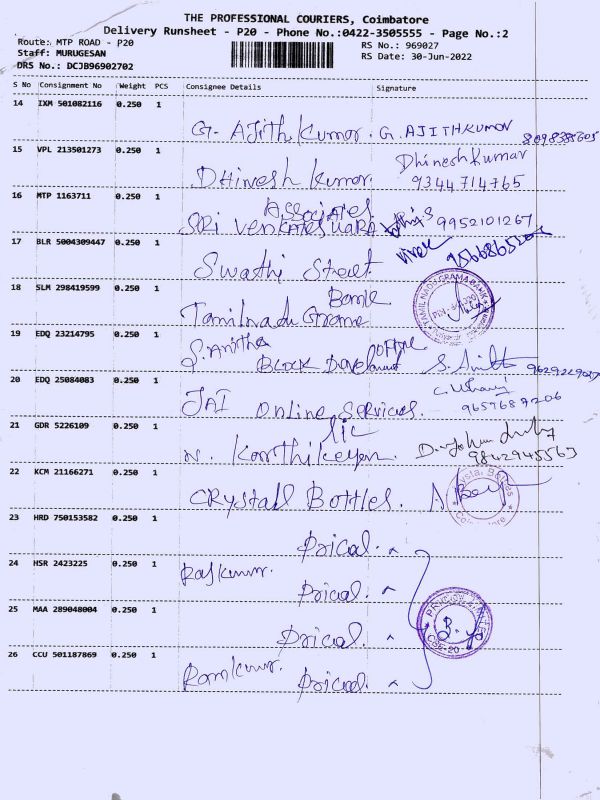 THE PROFESSIONAL COURIERS, Coimbatore
Delivery Runsheet - P20 - Phone No.:0422-3505555 - Page No.:2
Route: MTP ROAD - P20
RS No.: 969027
Staff: MURUGESAN
RS Date: 30-Jun-2022
DRS No.: DCJB96902702
S No Consignment No Weight PCS Consignee Details Signature
14 IXM 501082116 0.250 1
G- Ajith Kumar. G. AJITHKUMAR
15 VPL 213501273 0.250 1
DHinesh Kumar. Dhinesh Kumar
9344714765
16 MTP 1163711 0.250 1
Associates
SRi Venkateswara 9952101267
17 BLR 5004309447 0.250 1
Swathi Street
18 SLM 298419599 0.250 1
Bank
Tamilnadu Grame
TAMIL NADU GRAMA BANK
19 EDQ 23214795 0.250 1
S. Anitha
Office
Block
20 EDQ 25084083 0.250 1
JAI Online Services.
9659687206
21 GDR 5226109 0.250 1
lic
N. Karthikeyan.
9842945563
22 KCM 21166271 0.250 1
Crystall Bottles.
23 HRD 750153582 0.250 1
Pricol.
24 HSR 2423225 0.250 1
Rajkumar.
Pricol.
25 MAA 289048004 0.250 1
Pricol.
26 CCU 501187869 0.250 1
Ramkumar. Pricol.